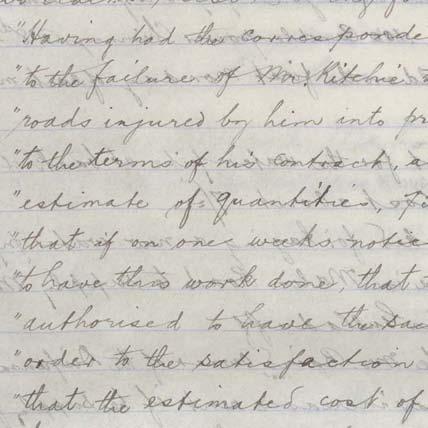 "Having had the corresponde
"to the failure of Mr. Ritchie
"roads injured by him into pr
"to the terms of his contract, a
"estimate of quantities,
"that if on one weeks notice
"to have this work done, that
"authorised to have the sa
"order to the satisfaction
"that the estimated cost of